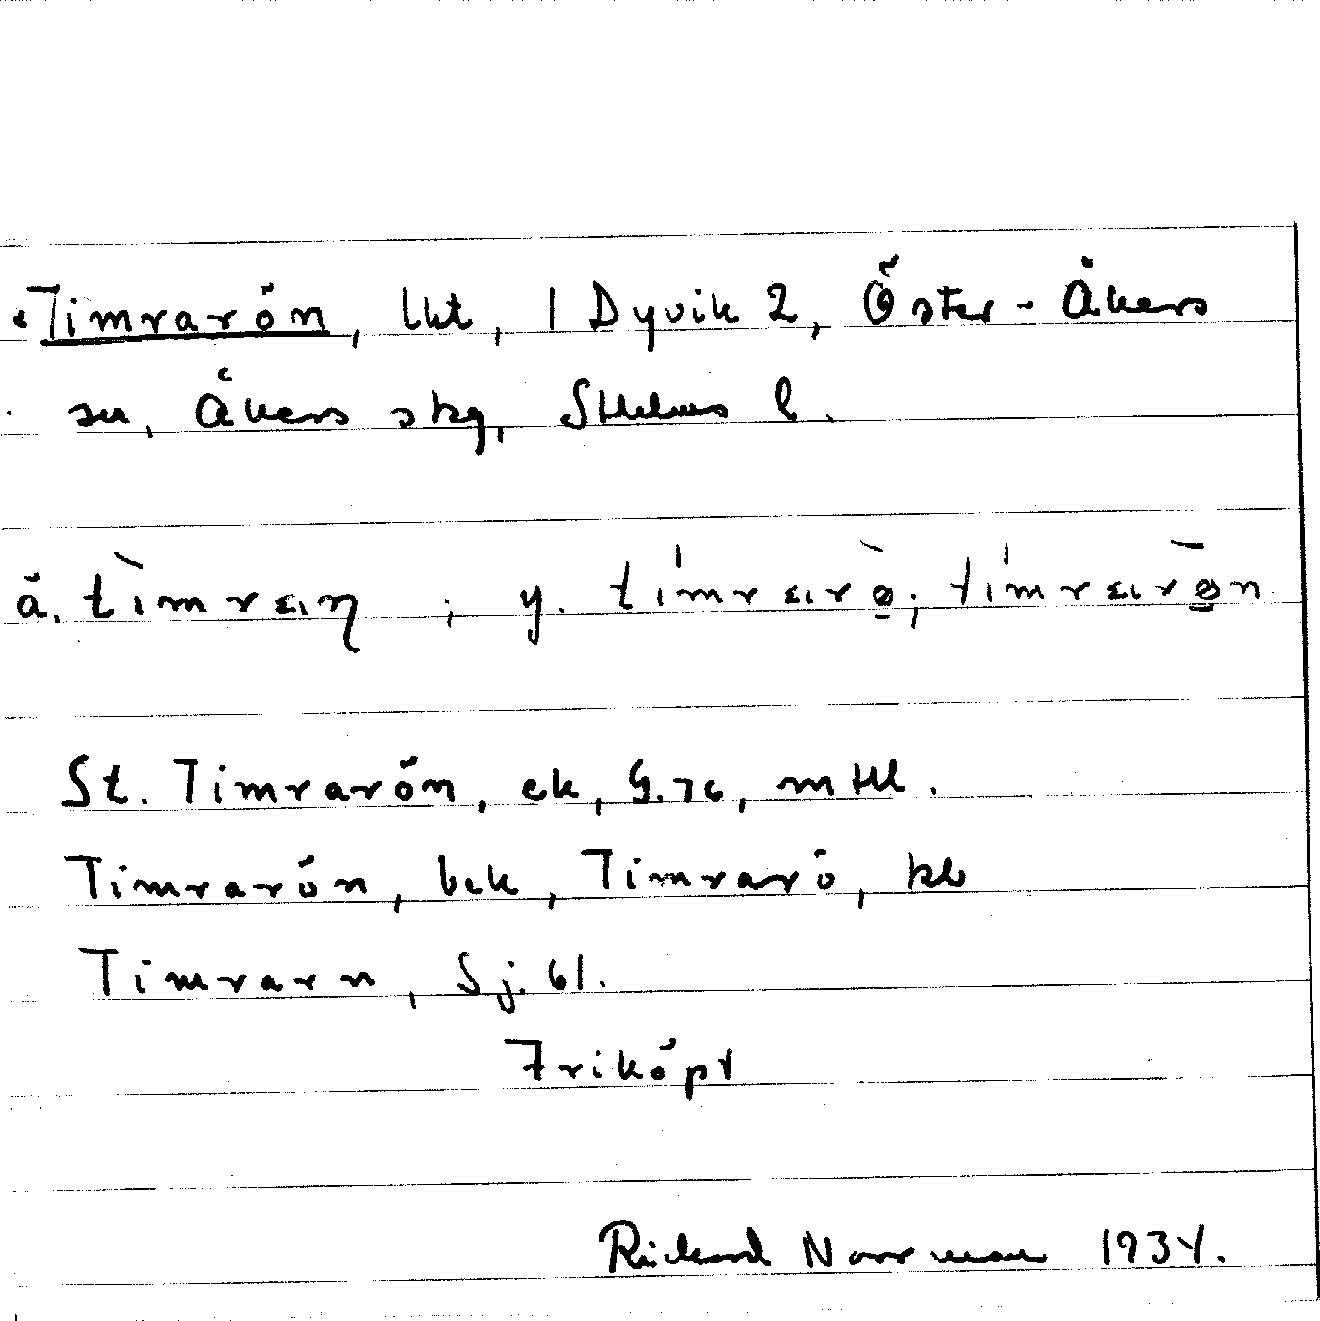 Timrarön, lht, 1 Dyvik 2, Öster-Åkers
sn, Åkers skg, Sthlms l.
ä. tìmraɩη ; y. tímraɩrö̀; tímraɩrøn
St. Timrarön, ek, G.76, mtkl.
Timrarön, bek, Timrarö, kb
Timrarn, Sj. 61.
Friköpt
Rickard Norrman 1934.